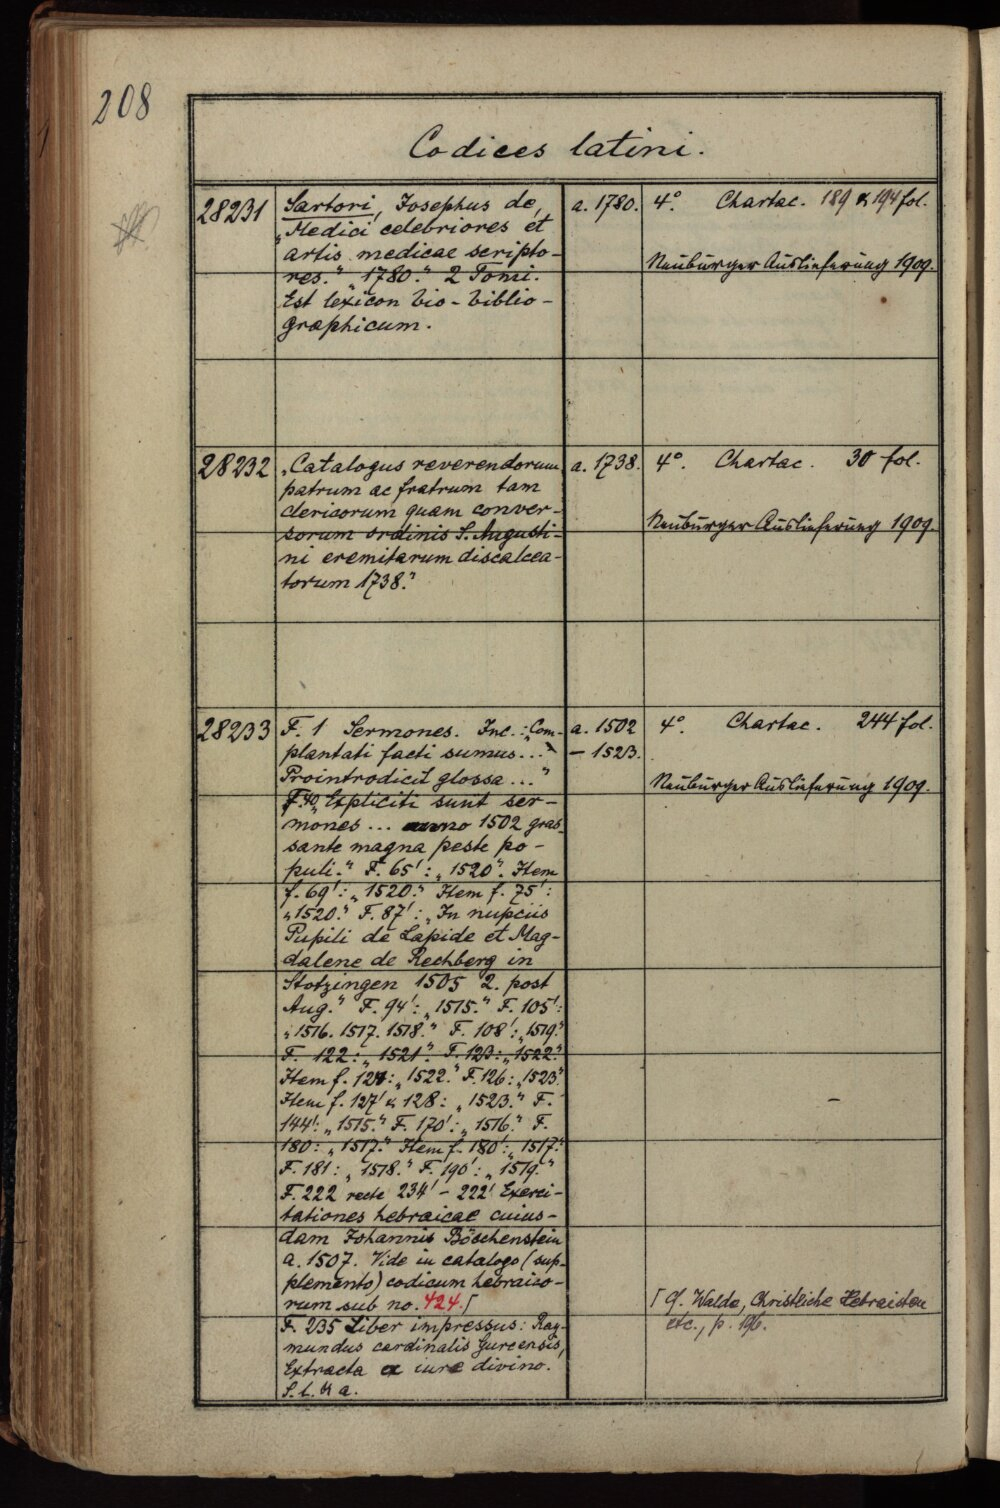 208
Codices latini.
28231
Sartori, Josephus de,
„Medici celebriores et
artis medicae scripto-
res.“ „1780.“ 2 Tomi.
Est lexicon bio-biblio-
graphicum.
a. 1780.
4° Chartac. 189 & 194 fol.
Neuburger Auslieferung 1909.
28232
„Catalogus reverendorum
patrum ac fratrum tam
clericorum quam conver-
sorum ordinis S. Augusti-
ni eremitarum discalcea-
torum 1738.“
a. 1738.
4°. Chartac. 30 fol.
Neuburger Auslieferung 1909.
28233
F. 1 Sermones. Inc.: „Com-
plantati facti sumus...“
Prointrodicit glossa...“
F. 40 „Expliciti sunt ser-
mones... anno 1502 gras-
sante magna peste po-
puli.“ F. 65': „1520“. Item
f. 69': „1520.“ Item f. 75':
„1520.“ F. 87': „In nupciis
Pupili de Lapide et Mag-
dalene de Rechberg in
Stotzingen 1505 2. post
Aug.“ F. 94': „1515.“ F. 105':
„1516. 1517. 1518.“ F. 108': „1519.“
F. 122: „1521“. F. 123: „1522.“
Item f. 124: „1522.“ F. 126: „1523.“
Item f. 127' & 128: „1523.“ F.
144': „1515.“ F. 170': „1516.“ F.
180: „1517.“ Item f. 180': „1517.“
F. 181: „1518.“ F. 190': „1519.“
F. 222 recte 234' – 222' Exerci-
tationes hebraicae cuius-
dam Johannis Böschenstein
a. 1507. Vide in catalogo (sup-
plemento) codicum hebraico-
rum sub no. 424. ⌈
F. 235 Liber impressus: Ray-
mundus cardinalis Gurcensis,
Extracta ex iure divino.
S. l. & a.
a. 1502
– 1523.
4° Chartac. 244 fol.
Neuburger Auslieferung 1909.
⌈ cf. Walde, Christliche Hebraisten
etc., p. 196.